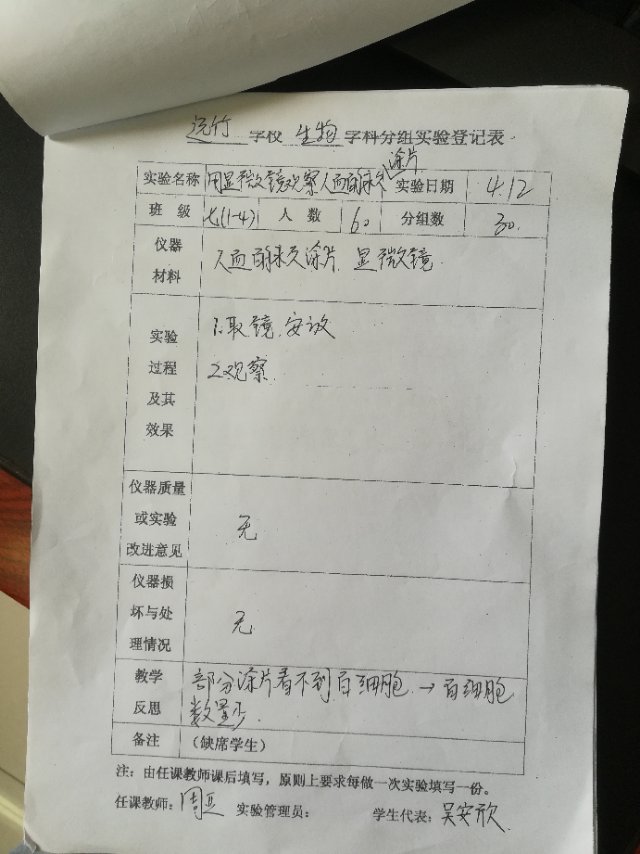 远竹 学校 生物 学科分组实验登记表
实验名称 用显微镜观察人血的永久涂片 实验日期 4.12
班 级 七(1-4) 人 数 60 分组数 30.
仪器材料 人血的永久涂片、显微镜.
实验过程及其效果 1.取镜、安放
2.观察
仪器质量或实验改进意见 无
仪器损坏与处理情况 无
教学反思 部分涂片看不到白细胞 → 白细胞
数量少.
备注 (缺席学生)
注:由任课教师课后填写,原则上要求每做一次实验填写一份。
任课教师:周正 实验管理员: 学生代表:吴安欣